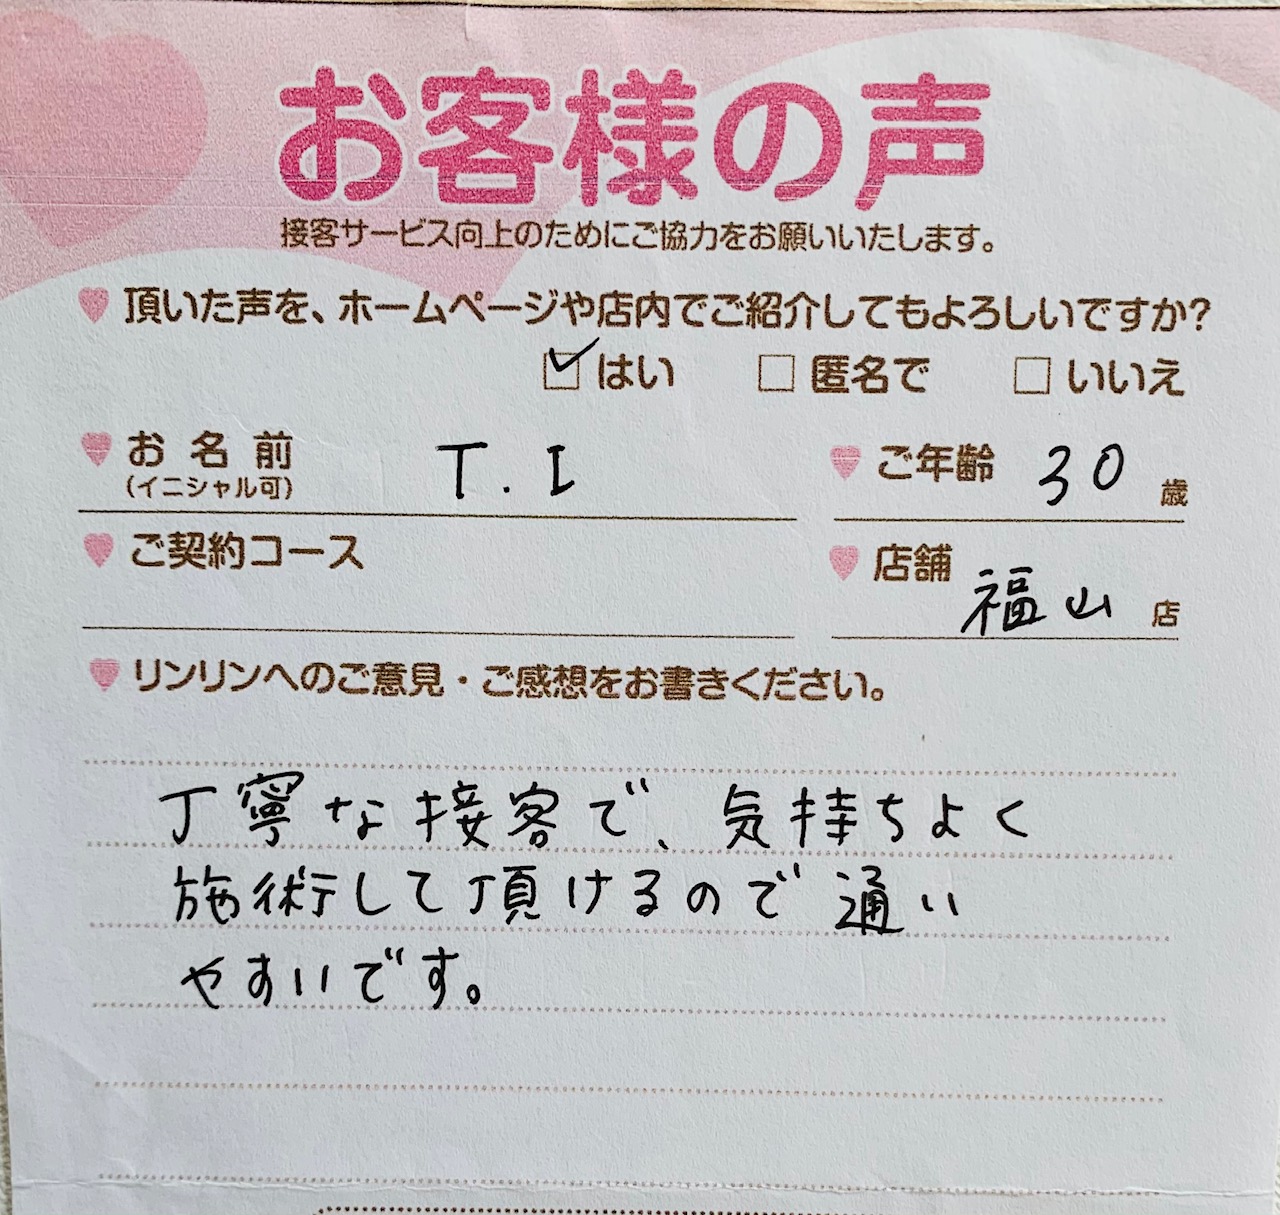 お客様の声
接客サービス向上のためにご協力をお願いいたします。
頂いた声を、ホームページや店内でご紹介してもよろしいですか?
はい 匿名で いいえ
お名前 T.I ご年齢 30 歳
(イニシャル可)
ご契約コース 店舗 福山 店
リンリンへのご意見・ご感想をお書きください。
丁寧な接客で、気持ちよく
施術して頂けるので通い
やすいです。